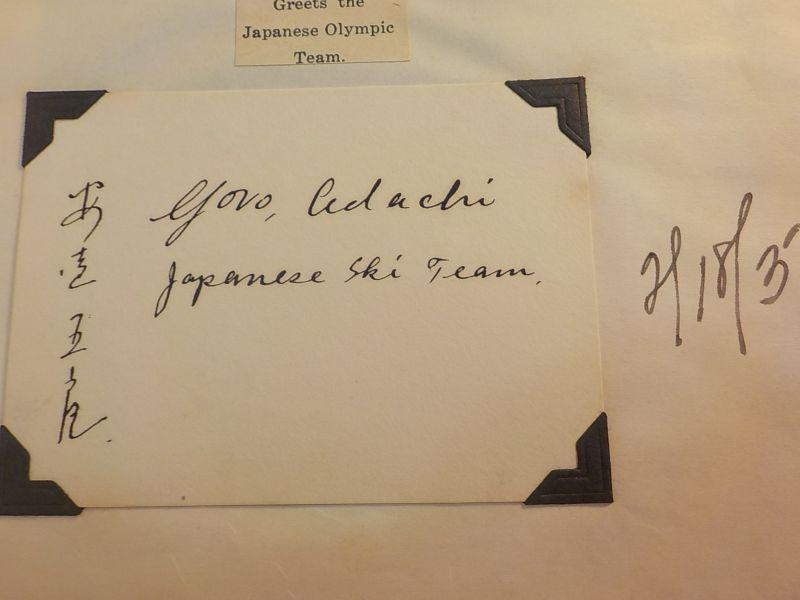 Greets the
Japanese Olympic
Team.
安達五郎
Goro, Adachi
Japanese Ski Team.
2/18/3